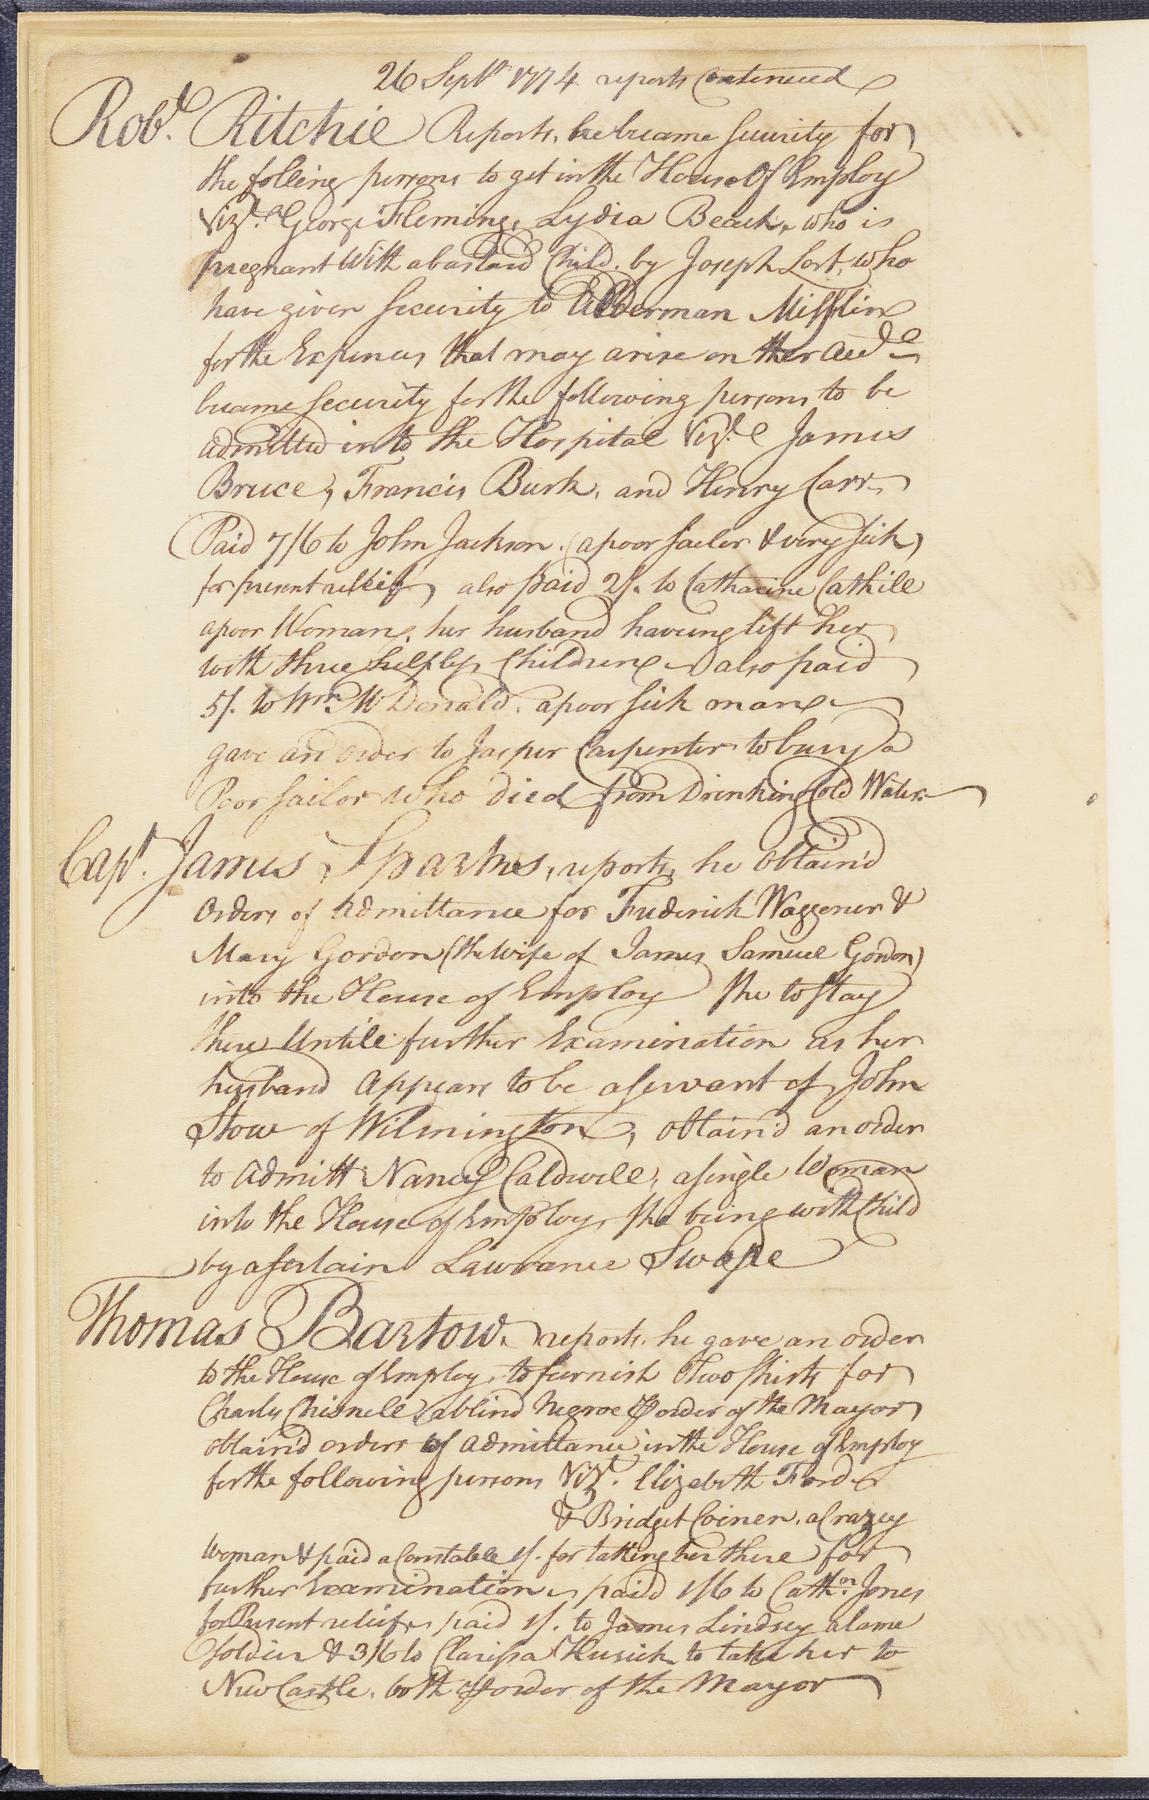 26 Septr 1774 reports Continued
Robt. Ritchie Reports, he became Security for
the folling persons to get in the House Of Employ
Vizt. George Fleming, Lydia Beack, who is
pregnant With a bastard Child, by Joseph Lort, who
have given Security to Alderman Mifflin
for the Expences that may arise on
became Security for the following persons to be
admitted into the Hospital Vizt. James
Bruce, Francis Burk, and Henry Carr
Paid 7/6 to John Jackson (a poor sailor & very sick)
for present relief, also paid 2/. to Catharine Cathill
a poor Woman, her husband haveing left her
with three helpless Children also paid
5/. to Wm. McDonald, a poor sick man
gave an order to Jasper Carpenter to bury a
Poor Sailor who died from Drinking Cold Water
Capt. James Sparkes, reports, he obtain'd
Orders of admittance for Frederick Waggener &
Mary Gordon (the wife of James Samuel Gordon)
into the House of Employ She to Stay
there Untill further Examination as her
husband appears to be a Servant of John
Stow of Wilmington, obtain'd an order
to admitt Nancy Caldwell, a single Woman
into the House of Employ, She being with Child
by a Sertain Lawrance Swape
Thomas Bartow, reports, he gave an order
to the House of Employ, to furnish two Shirts for
Charls Chisnell a blind Negroe ⅌ order of the Mayor
obtain'd orders of admittance in the House of Employ
for the following persons Vizt. Elizabeth Ford
& Bridget Coinen, a Crazey
Woman & paid a Constable 1/. for takting her there for
further Examination, paid 1/6 to Cathn. Jones
for Present relief, paid 1/. to James Lindsey a lame
Soldier & 3/6 to Clarissa Kusick to take her to
New Castle, both ⅌ order of the Mayor